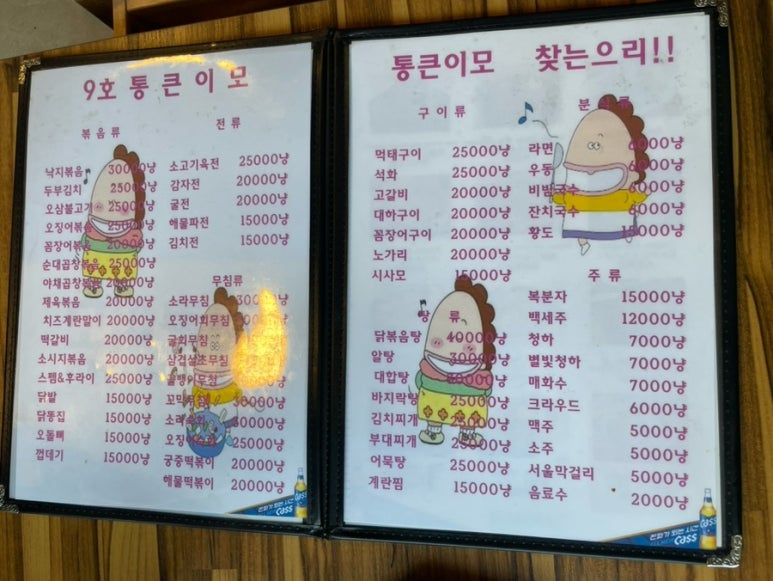 9호 통 큰 이 모
볶 음 류
낙지볶음 30000냥
두부김치 25000냥
오삼불고기 25000냥
오징어볶음 25000냥
꼼장어볶음 20000냥
순대곱창볶음 25000냥
야채곱창볶음 20000냥
제육볶음 20000냥
치즈계란말이 20000냥
떡갈비 20000냥
소시지볶음 20000냥
스팸&후라이 25000냥
닭발 15000냥
닭똥집 15000냥
오돌뼈 15000냥
껍데기 15000냥
전 류
소고기육전 25000냥
감자전 20000냥
굴전 20000냥
해물파전 15000냥
김치전 15000냥
무침류
소라무침
오징어회무침
굴회무침
삼겹살초무침
골뱅이무침
꼬막무침
소라숙회
오징어숙회 25000냥
궁중떡볶이 20000냥
해물떡볶이 20000냥
통큰이모 찾는으리!!
구 이 류
먹태구이 25000냥
석화 25000냥
고갈비 20000냥
대하구이 20000냥
꼼장어구이 20000냥
노가리 20000냥
시사모 15000냥
탕 류
닭볶음탕 40000냥
알탕 30000냥
대합탕
바지락탕 25000냥
김치찌개 25000냥
부대찌개 25000냥
어묵탕 25000냥
계란찜 15000냥
분 식 류
라면 6000냥
우동 6000냥
비빔국수 6000냥
잔치국수 6000냥
황도 15000냥
주 류
복분자 15000냥
백세주 12000냥
청하 7000냥
별빛청하 7000냥
매화수 7000냥
크라우드 6000냥
맥주 5000냥
소주 5000냥
서울막걸리 5000냥
음료수 2000냥
진짜가 되는 시간
Cass
진짜가 되는 시간
Cass